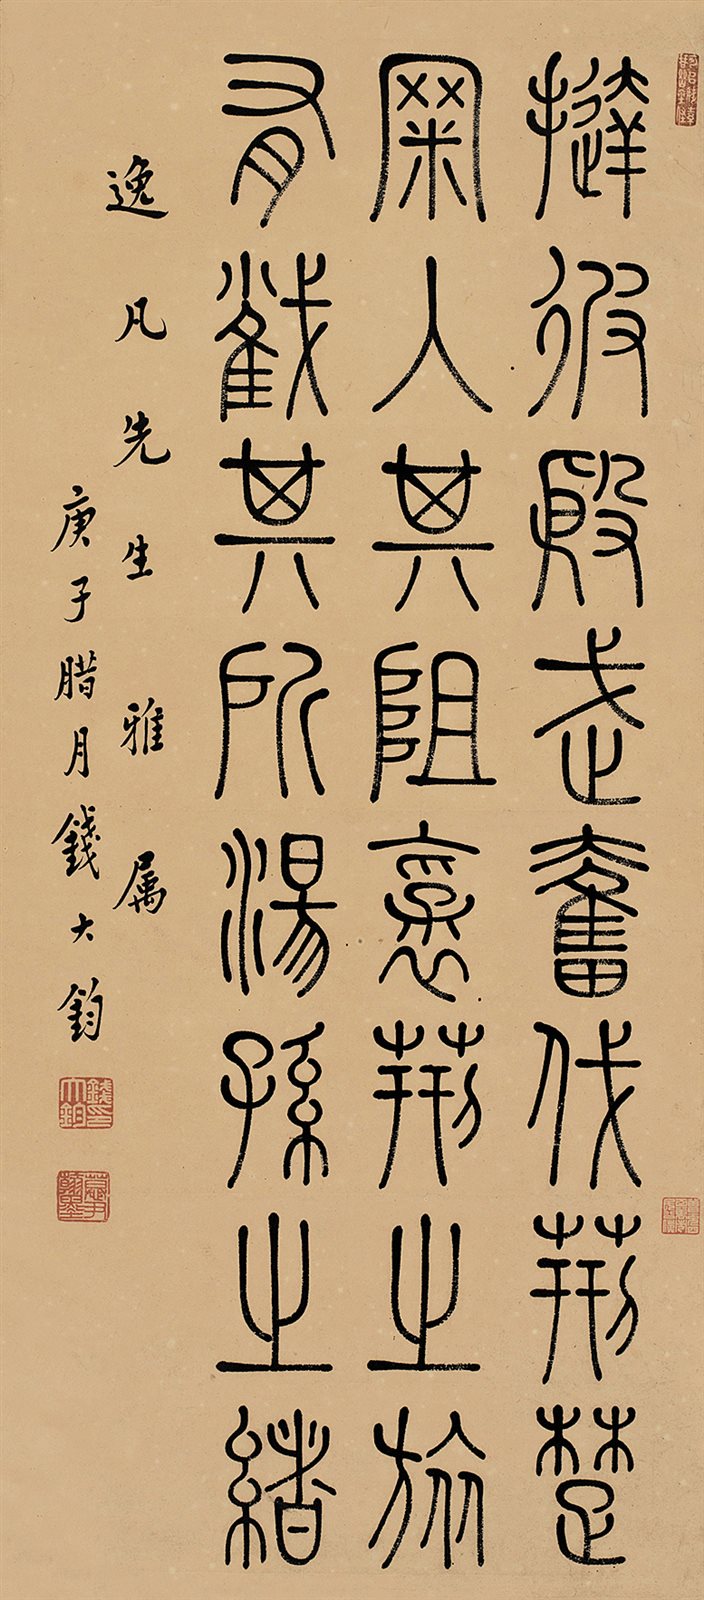 撻彼殷武奮伐荊楚
罙入其阻裒荊之旅
有截其所湯孫之緒
逸凡先生雅属
庚子腊月錢大鈞
錢印大鈞
慕尹翰墨